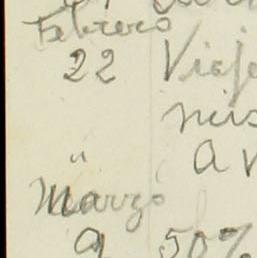 Febrero
22 Viaje
a v
"
Marzo
9 50%